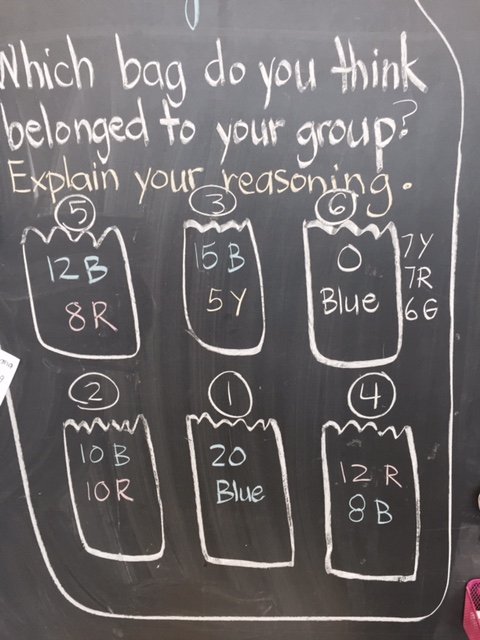 Which bag do you think
belonged to your group?
Explain your reasoning.
5
12B
8R
3
15 B
5 Y
6
0
Blue
7Y
7R
6G
2
10 B
10R
1
20
Blue
4
12 R
8 B